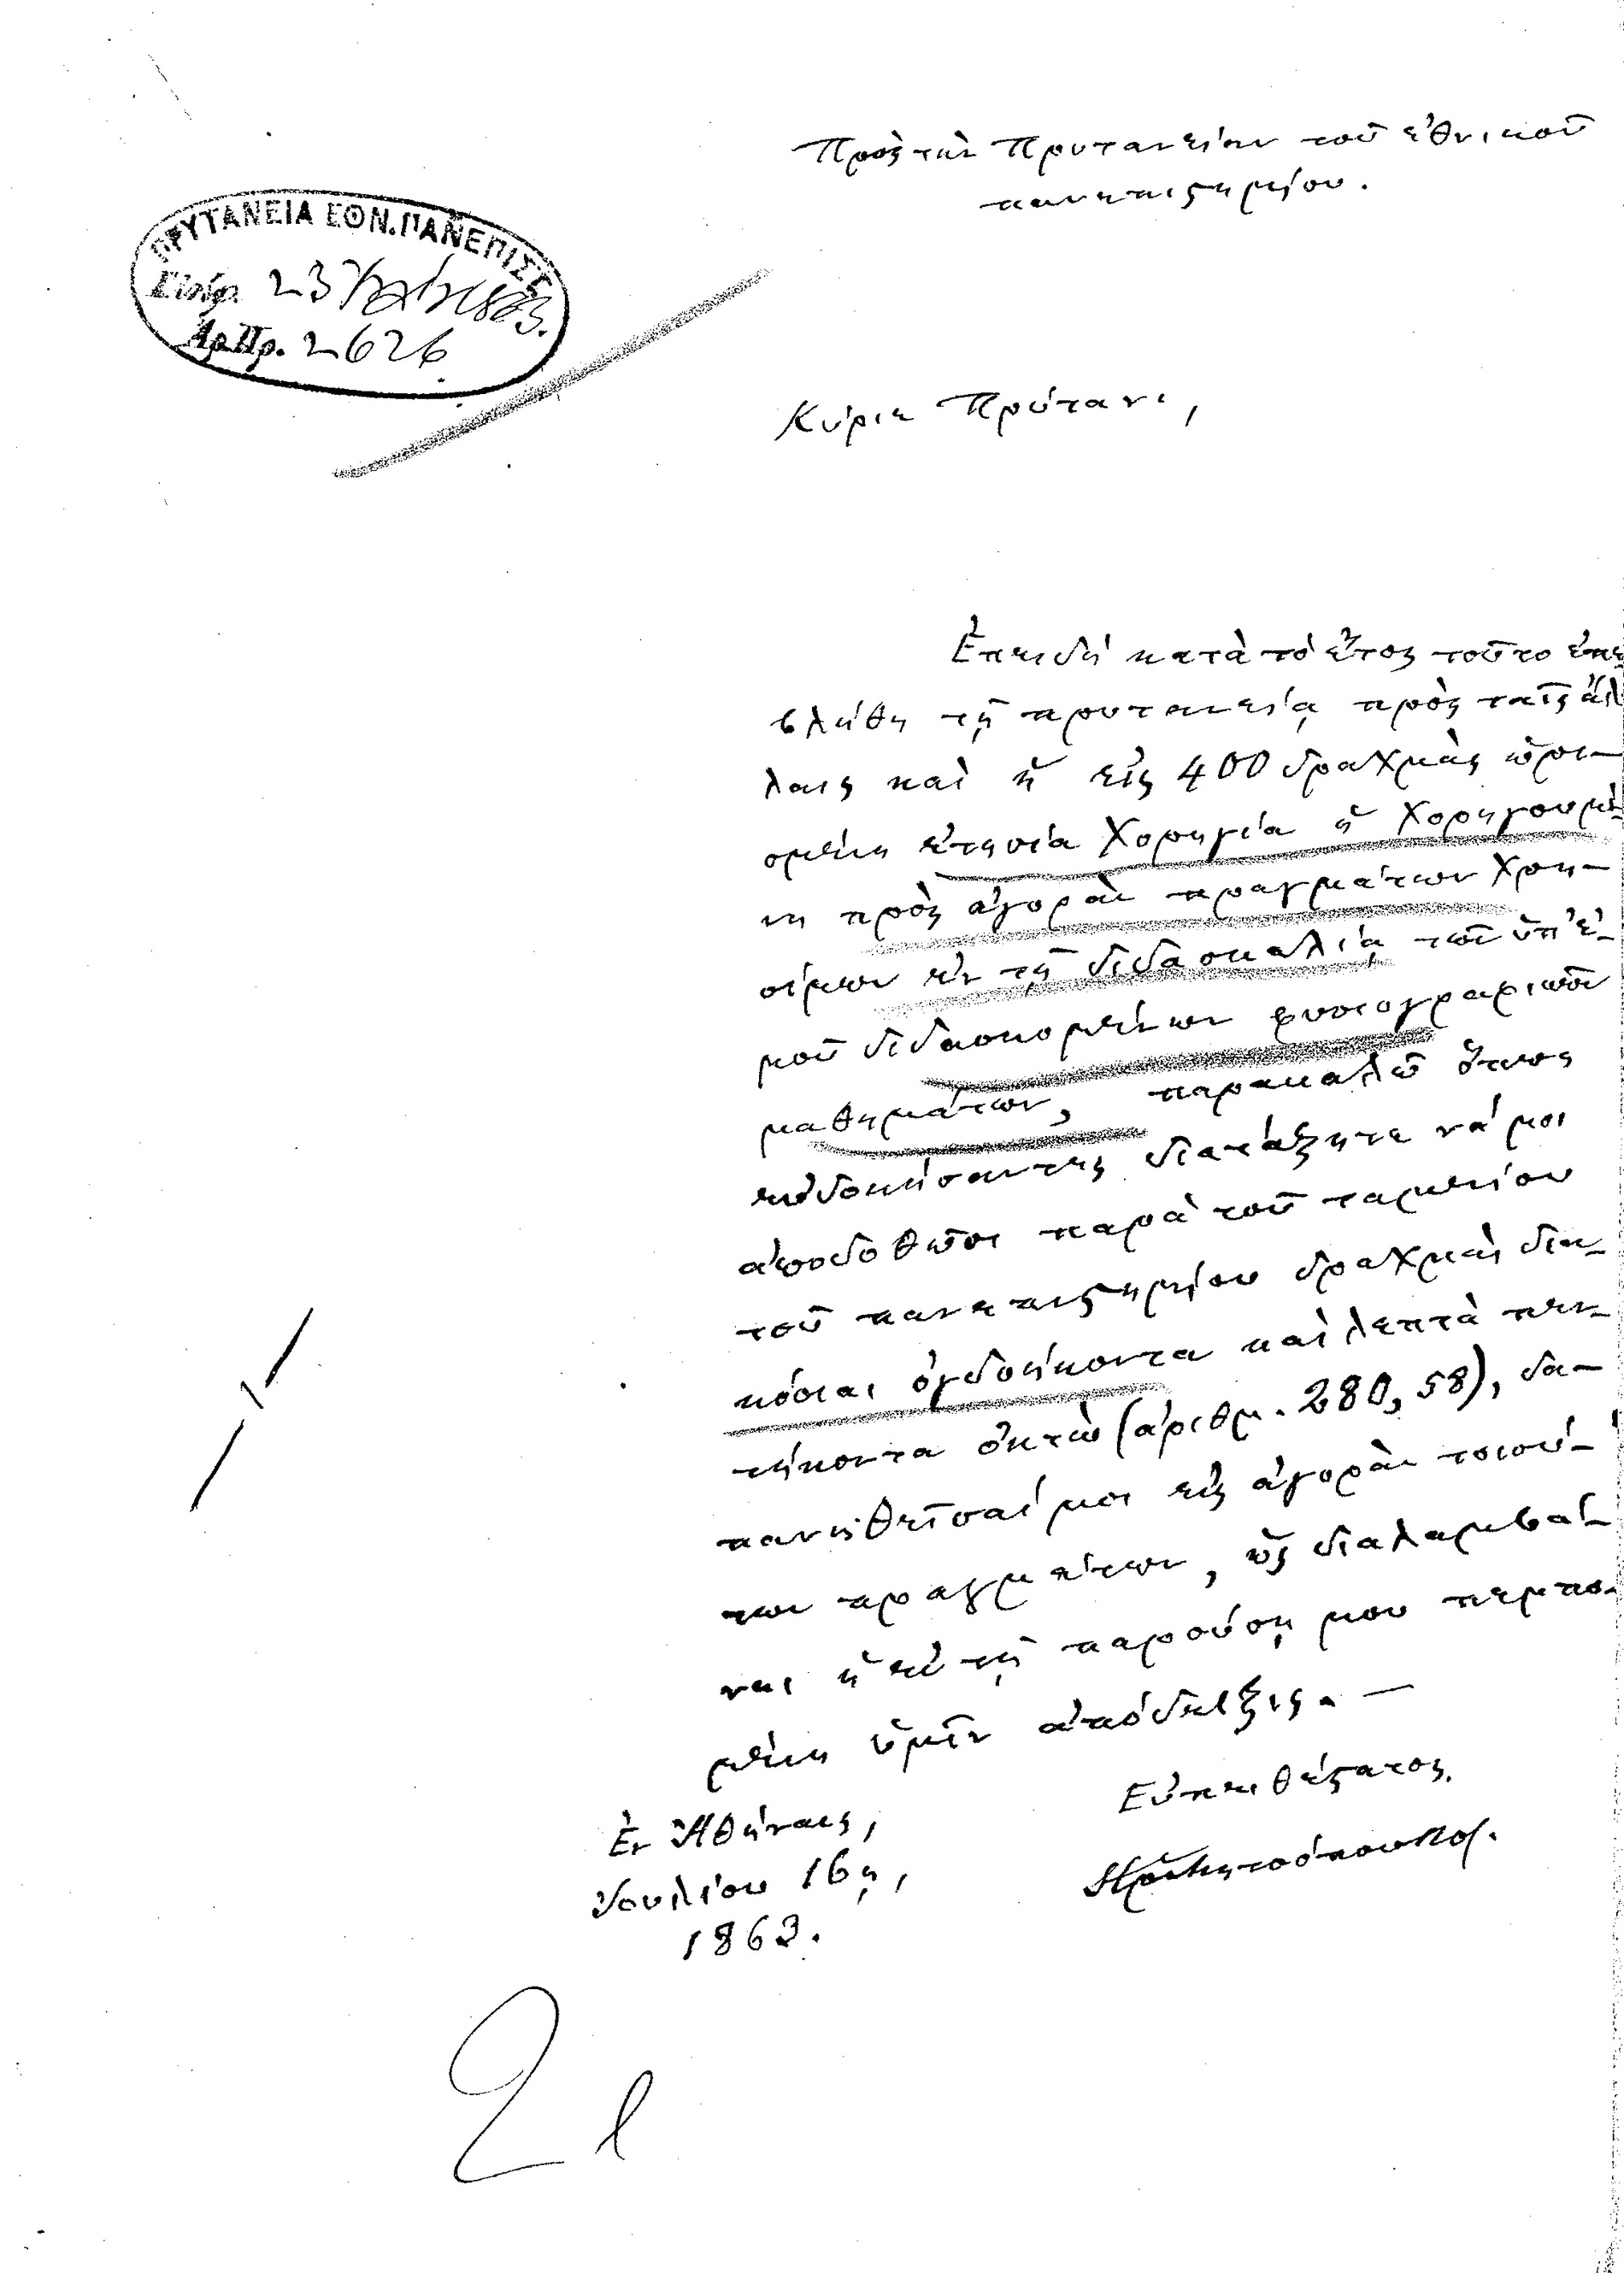 Πρὸς τὴν Πρυτανείαν τοῦ ἐθνικοῦ
πανεπιστημίου.
ΠΡΥΤΑΝΕΙΑ ΕΘΝ. ΠΑΝΕΠΙΣΤ
Εἰσήχ. 23
Ἀρ.Πρ. 2626
Κύριε Πρύτανι,
Ἐπειδὴ κατὰ τὸ ἔτος τοῦτο ἐπε
βλήθη τῇ πρυτανείᾳ πρὸς ταῖς ἄλ
λαις καὶ ἡ εἰς 400 δραχμὰς ὡρι-
σμένη ἐτησία χορηγία ἡ χορηγουμέ-
νη πρὸς ἀγορὰν πραγμάτων χρη-
σίμων ἐν τῇ διδασκαλίᾳ τῶν ὑπ' ἐ-
μοῦ διδασκομένων φυσιογραφικῶν
μαθημάτων, παρακαλῶ ὅπως
εὐδοκήσαντες διατάξητε νά μοι
ἀποδοθῶσι παρὰ τοῦ ταμείου
τοῦ πανεπιστημίου δραχμαὶ δια-
κόσιαι ὀγδοήκοντα καὶ λεπτὰ πεν-
τήκοντα ὀκτὼ (ἀριθμ. 280,58), δα-
πανηθεῖσαί μοι εἰς ἀγορὰν τοιού-
των πραγμάτων, ὡς διαλαμβά-
νει ἡ ἐν τῇ παρούσῃ μου πεμπο-
μένη ὑμῖν ἀπόδειξις. —
Εὐπειθέστατος
Ἐν Ἀθήναις,
Ἰουλίου 16ῃ,
1863.